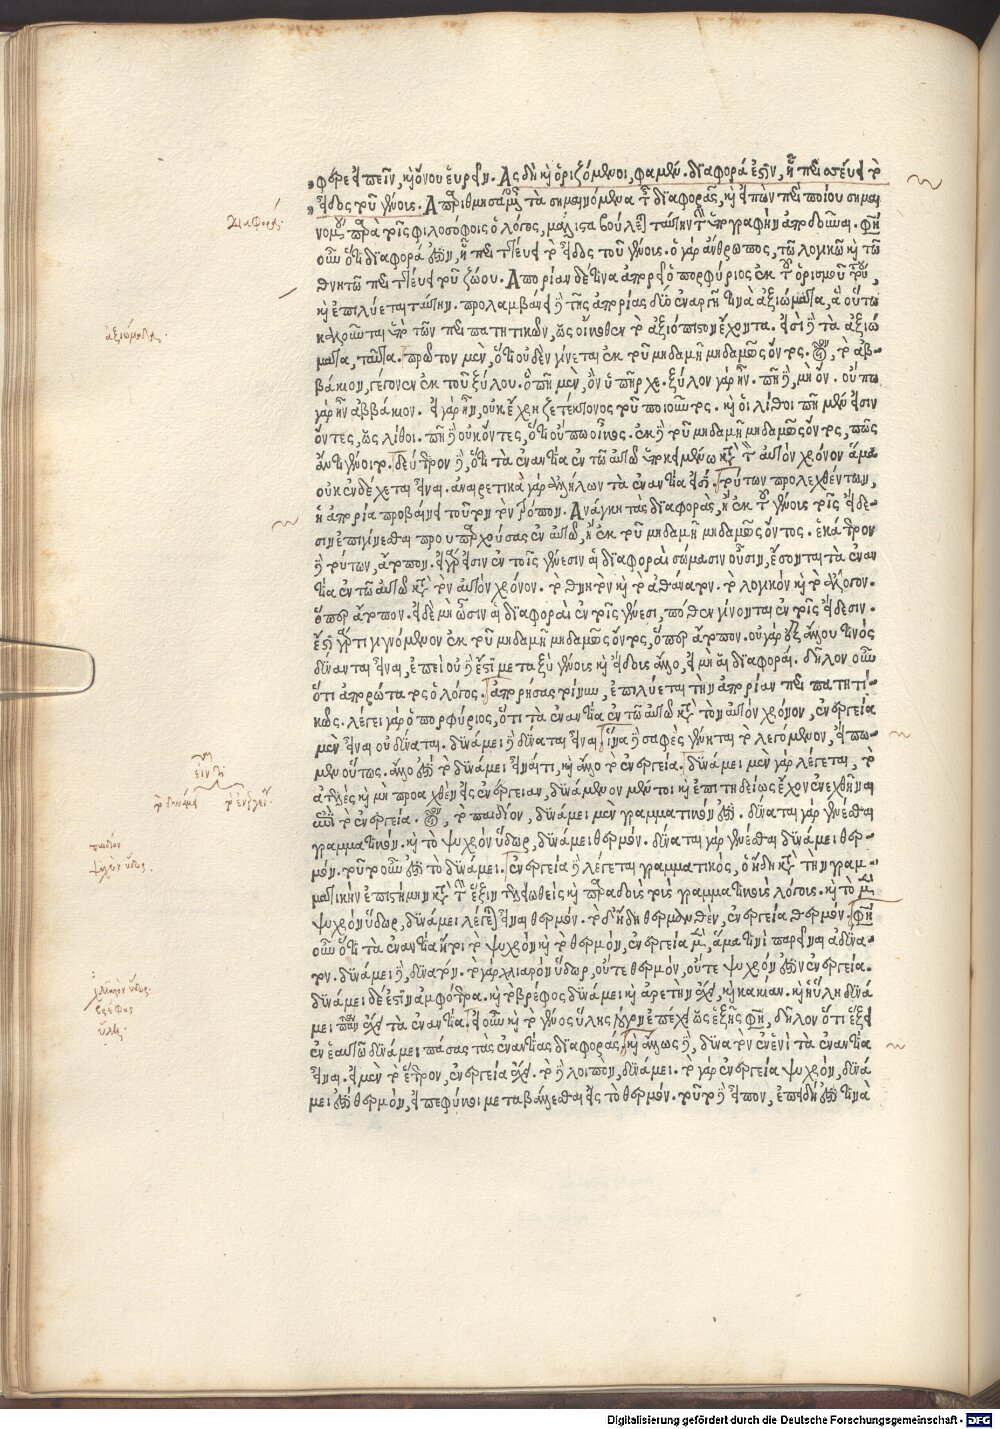 Διαφορᾶς·
ἀξιώματα·
παιδίον
ψυχρὸν ὕδωρ·
χλιαρὸν ὕδωρ·
βρέφος
ὕλη·
φέρε εἰπεῖν, καὶ ὄνου εὕρεσιν. Ἃς δὴ καὶ ὁριζόμενοι, φαμέν. διαφορά ἐστιν, ᾗ περιττεύει τὸ
εἶδος τοῦ γένους. Ἀπαριθμησάμενος τὰ σημαινόμενα τῆς διαφορᾶς, καὶ εἰπὼν περὶ ποίου σημαι
νομένου παρὰ τοῖς φιλοσόφοις ὁ λόγος, μάλιστα βούλεται ταύτην τὴν ὑπογραφὴν ἀποδοῦναι. φησὶν
οὖν ὅτι διαφορά ἐστιν, ᾗ περιττεύει τὸ εἶδος τοῦ γένους. ὁ γὰρ ἄνθρωπος, τῷ λογικῷ καὶ τῷ
θνητῷ περιττεύει τοῦ ζώου. Ἀπορίαν δέ τινα ἀπορεῖ ὁ πορφύριος ἐκ τοῦ ὁρισμοῦ τούτου,
καὶ ἐπιλύεται ταύτην. προλαμβάνει δὲ τῆς ἀπορίας δύο ἐναργῆ τινὰ ἀξιώματα, ἃ οὕτω
καλοῦνται ὑπὸ τῶν περιπατητικῶν, ὡς οἴκοθεν τὸ ἀξιόπιστον ἔχοντα. εἰσὶ δὲ τὰ ἀξιώ
ματα, ταῦτα. πρῶτον μὲν, ὅτι οὐδὲν γίνεται ἐκ τοῦ μηδαμῇ μηδαμῶς ὄντος. οἷον, τὸ ἀβ-
βάκιον, γέγονεν ἐκ τοῦ ξύλου. ὅ πῇ μὲν, ὂν ὑπῆρχε. ξύλον γὰρ ἦν. πῇ δὲ, μὴ ὄν. οὔπω
γὰρ ἦν ἀββάκιον. εἰ γὰρ ἦν, οὐκ ἔχρῃζε τέκτονος τοῦ ποιοῦντος. καὶ οἱ λίθοι πῇ μὲν εἰσιν
ὄντες, ὡς λίθοι. πῇ δὲ οὐκ ὄντες, ὅτι οὔπω οἶκος. ἐκ δὲ τοῦ μηδαμῇ μηδαμῶς ὄντος, πῶς
ἄν τι γένοιτο. δεύτερον δὲ, ὅτι τὰ ἐναντία ἐν τῷ αὐτῷ ὑποκειμένῳ κατὰ τὸν αὐτὸν χρόνον ἅμα
οὐκ ἐνδέχεται εἶναι. ἀναιρετικὰ γὰρ ἀλλήλων τὰ ἐναντία εἰσί. τούτων προλεχθέντων,
ἡ ἀπορία προβαίνει τοῦτον τὸν τρόπον. Ἀνάγκη τὰς διαφορὰς, ἢ ἐκ τοῦ γένους τοῖς εἴδε-
σιν ἐπιγίνεσθαι προυπαρχούσας ἐν αὐτῷ, ἢ ἐκ τοῦ μηδαμῇ μηδαμῶς ὄντος. ἑκάτερον
δὲ τούτων, ἄτοπον. εἰ γὰρ εἰσιν ἐν τοῖς γένεσιν αἱ διαφοραὶ σώμασιν οὖσιν, ἔσονται τὰ ἐναν
τία ἐν τῷ αὐτῷ κατὰ τὸν αὐτὸν χρόνον. τὸ θνητὸν καὶ τὸ ἀθάνατον. τὸ λογικὸν καὶ τὸ ἄλογον.
ὅπερ ἄτοπον. εἰ δὲ μὴ ὦσιν αἱ διαφοραὶ ἐν τοῖς γένεσι, πόθεν γίνονται ἐν τοῖς εἴδεσιν.
ἔσται γάρ τι γινόμενον ἐκ τοῦ μηδαμῇ μηδαμῶς ὄντος, ὅπερ ἄτοπον. οὐ γὰρ ἐξ ἄλλου τινὸς
δύνανται εἶναι, ἐπεὶ οὐδὲ ἔστι μεταξὺ γένους καὶ εἴδους ἄλλο, εἰ μὴ αἱ διαφοραί. δῆλον οὖν
ὅτι ἀπορώτατος ὁ λόγος. ἀπορήσας τοίνυν, ἐπιλύεται τὴν ἀπορίαν περιπατητι-
κῶς. λέγει γὰρ ὁ πορφύριος, ὅτι τὰ ἐναντία ἐν τῷ αὐτῷ κατὰ τὸν αὐτὸν χρόνον, ἐνεργείᾳ
μὲν εἶναι οὐ δύναται. δυνάμει δὲ δύναται εἶναι. ἵνα δὲ σαφὲς γένηται τὸ λεγόμενον, εἴπω-
μεν οὕτως. ἄλλο ἐστὶ τὸ δυνάμει εἶναί τι, καὶ ἄλλο τὸ ἐνεργείᾳ. δυνάμει μὲν γὰρ λέγεται, τὸ
ἀτελὲς καὶ μὴ προαχθὲν εἰς ἐνέργειαν, δυνάμενον μέντοι καὶ ἐπιτηδείως ἔχον ἐνεχθῆναι
ἐπὶ τὸ ἐνεργείᾳ. οἷον, τὸ παιδίον, δυνάμει μὲν γραμματικόν ἐστι. δύναται γὰρ γενέσθαι
γραμματικόν. καὶ τὸ ψυχρὸν ὕδωρ, δυνάμει θερμόν. δύναται γὰρ γενέσθαι δυνάμει θερ-
μόν. τοῦτο οὖν ἐστι τὸ δυνάμει. ἐνεργείᾳ δὲ λέγεται γραμματικὸς, ὁ ἤδη κατὰ τὴν γραμ-
ματικὴν ἐπιστήμην κατὰ τὴν ἕξιν τελειωθεὶς καὶ παραδοὺς τοὺς γραμματικοὺς λόγους. καὶ τὸ μὲν
ψυχρὸν ὕδωρ, δυνάμει λέγεται εἶναι θερμόν. τὸ δ' ἤδη θερμανθὲν, ἐνεργείᾳ θερμόν. φησὶν
οὖν ὅτι τὰ ἐναντία ἤτοι τὸ ψυχρὸν καὶ τὸ θερμὸν, ἐνεργείᾳ μὲν, ἅμα τινὶ παρεῖναι ἀδύνα-
τον. δυνάμει δὲ, δυνατόν. τὸ γὰρ χλιαρὸν ὕδωρ, οὔτε θερμὸν, οὔτε ψυχρόν ἐστιν ἐνεργείᾳ.
δυνάμει δέ ἐστιν ἀμφότερα. καὶ τὸ βρέφος δυνάμει καὶ ἀρετὴν ἔχει, καὶ κακίαν. καὶ ἡ ὕλη δυνά
μει πάντα ἔχει τὰ ἐναντία. εἰ οὖν καὶ τὸ γένος ὕλης λόγον ἐπέχει ὡς ἑξῆς φησὶ, δῆλον ὅτι ἕξει
ἐν ἑαυτῷ δυνάμει πάσας τὰς ἐναντίας διαφοράς. καὶ ἄλλως δὲ, δυνατὸν ἐν ἑνὶ τὰ ἐναντία
εἶναι. εἰ μὲν τὸ ἕτερον, ἐνεργείᾳ ἔχει. τὸ δὲ λοιπὸν, δυνάμει. τὸ γὰρ ἐνεργείᾳ ψυχρὸν, δυνά
μει ἐστὶ θερμὸν, εἰ πέφυκοι μεταβάλλεσθαι εἰς τὸ θερμόν. τοῦτο δὲ εἶπον, ἐπειδή ἐστι τινὰ
Digitalisierung gefördert durch die Deutsche Forschungsgemeinschaft - DFG